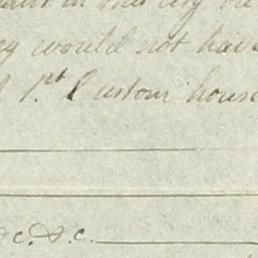 in this city
would not have
1st Custom house
&c. &c.